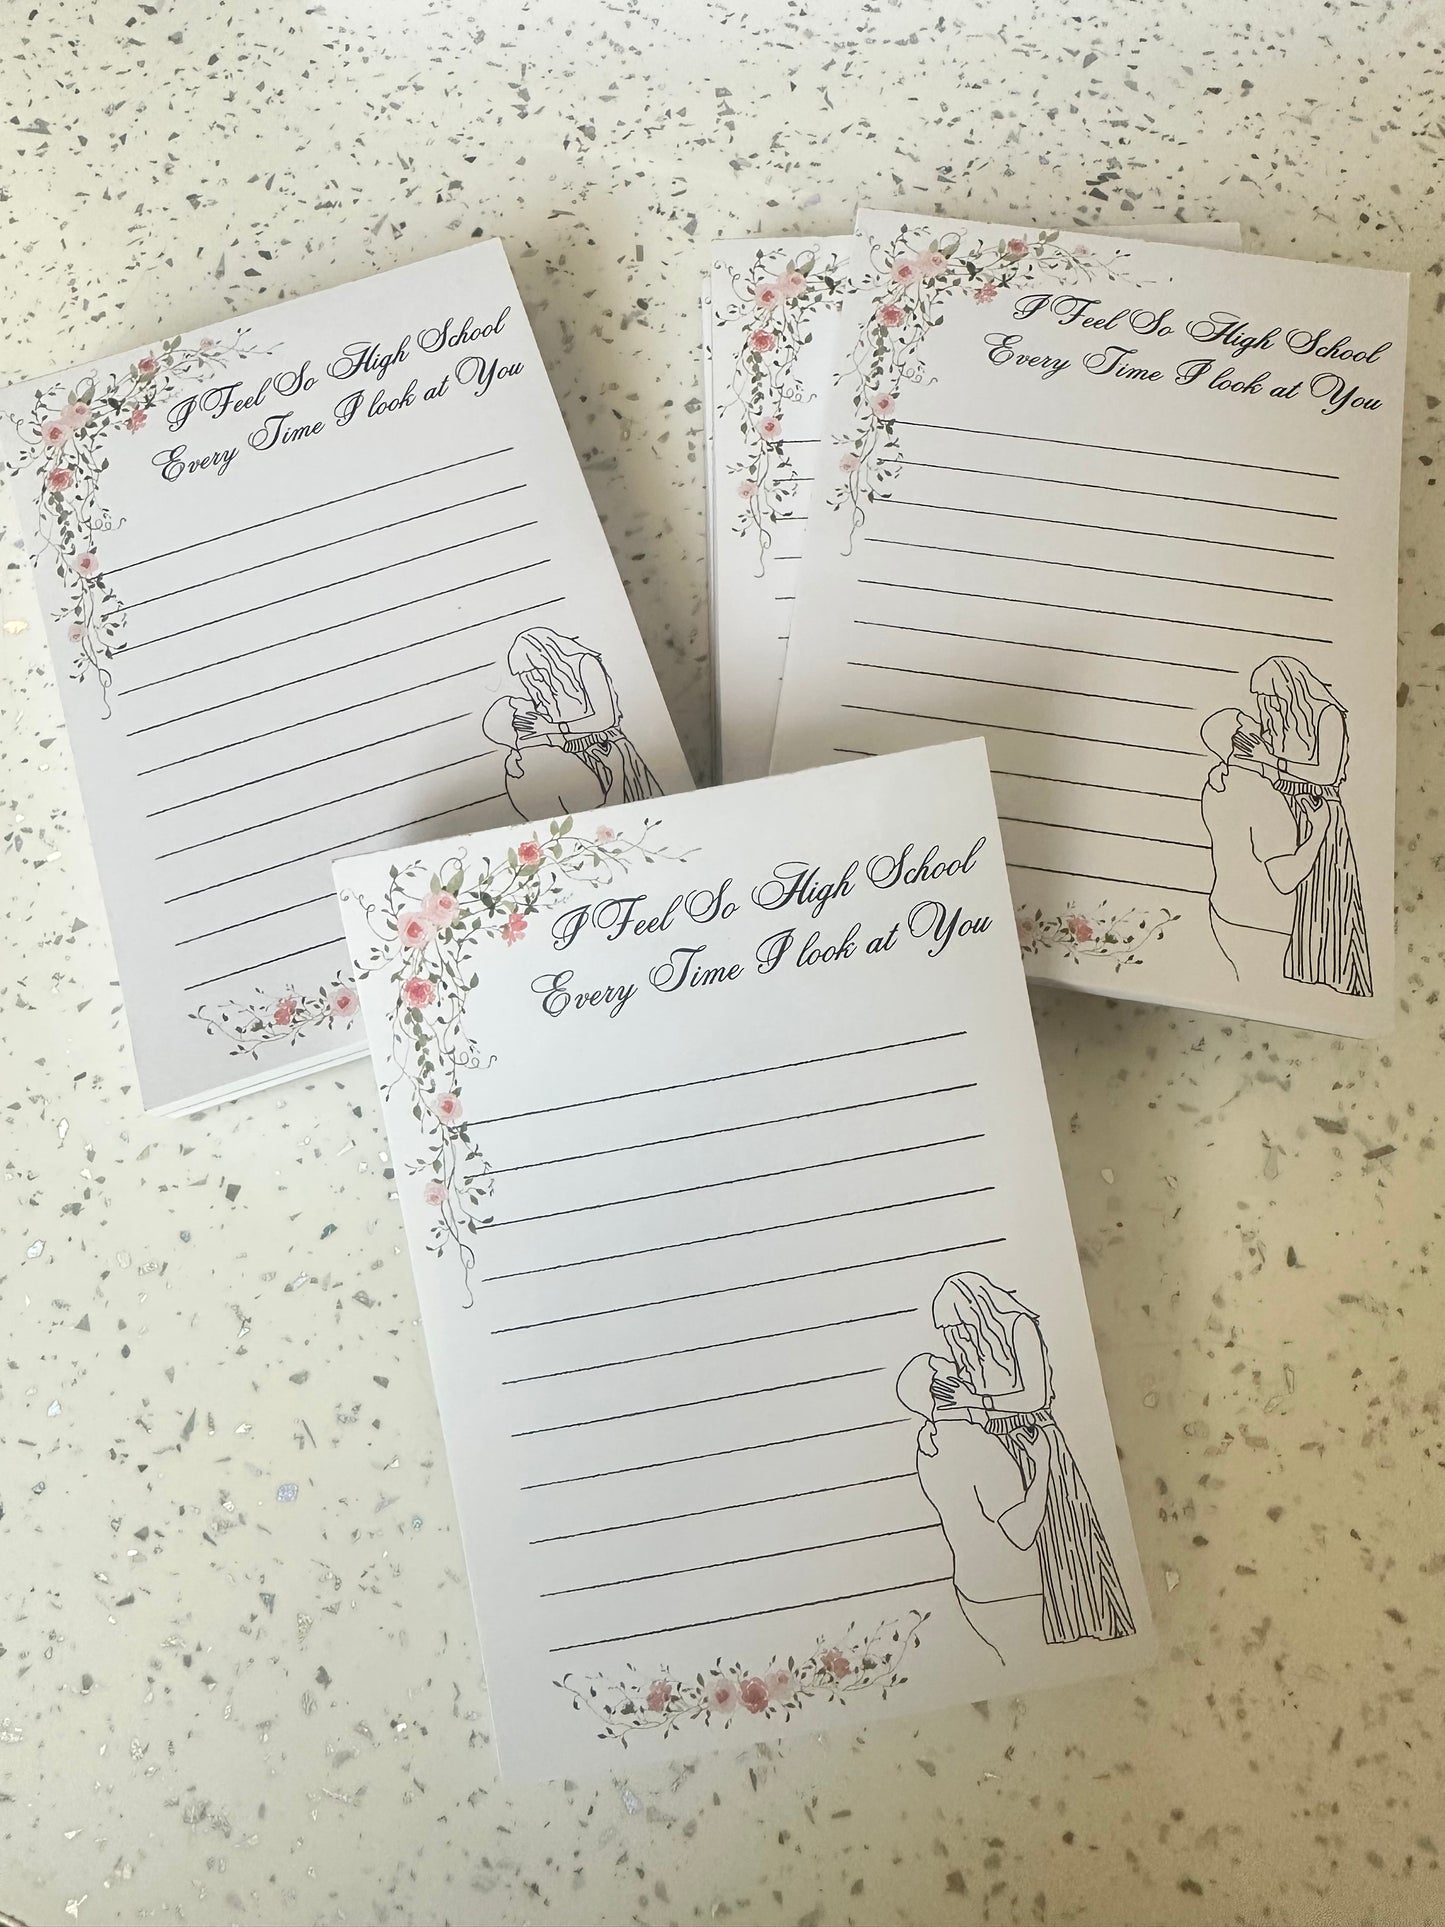 I Feel So High School
Every Time I look at You
I Feel So High School
Every Time I look at You
I Feel So High School
Every Time I look at You